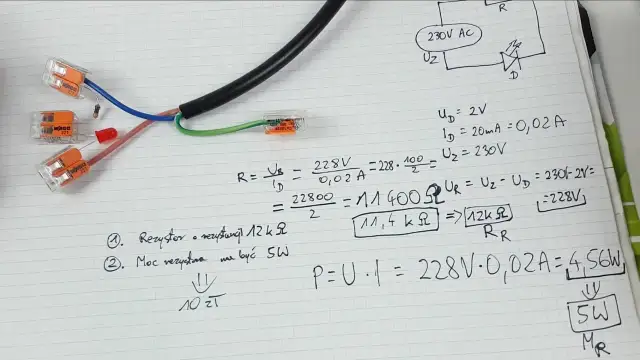 R
230V AC
U_Z
D
U_D = 2V
I_D = 20mA = 0,02A
U_Z = 230V
R = U_R / I_D = 228V / 0,02A = 228 · 100/2 =
= 22800/2 = 11400Ω
U_R = U_Z - U_D = 230V - 2V =
= 228V
11,4 kΩ => 12kΩ
R_R
1. Rezystor o rezystancji 12kΩ
2. Moc rezystora ma być 5W
10 zł
P = U · I = 228V · 0,02A = 4,56W
5W
M_R